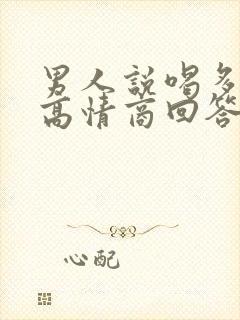 男人說喝多
高情商回答
心配